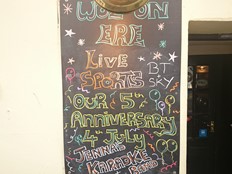 WOT'S ON
ERE
LIVE
SPORTS BT
SKY
OUR 5TH
ANNIVERSARY
4 JULY
JENNA'S
KARAOKE